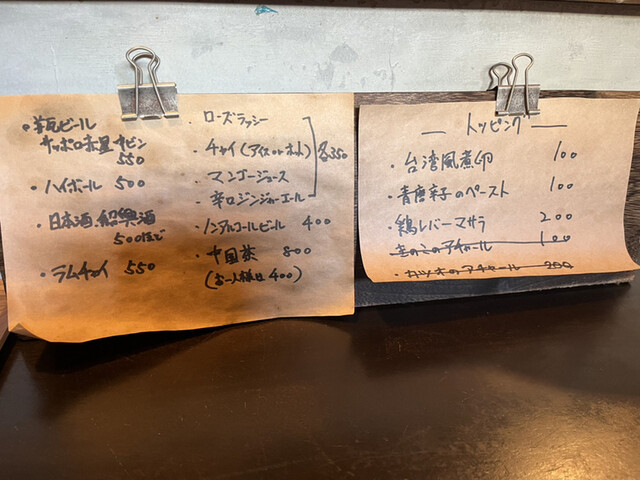 ・瓶ビール
サッポロ赤星 中ビン
550
・ハイボール 500
・日本酒、紹興酒
500ほど
・ラムチャイ 550
・ローズラッシー
・チャイ(アイスorホット)
・マンゴージュース
・辛口ジンジャーエール
各350
・ノンアルコールビール 400
・中国茶 800
(お一人様は400)
トッピング
・台湾風煮卵 100
・青唐辛子のペースト 100
・鶏レバーマサラ 200
きのこのアチャール 100
・カツオのアチャール 200